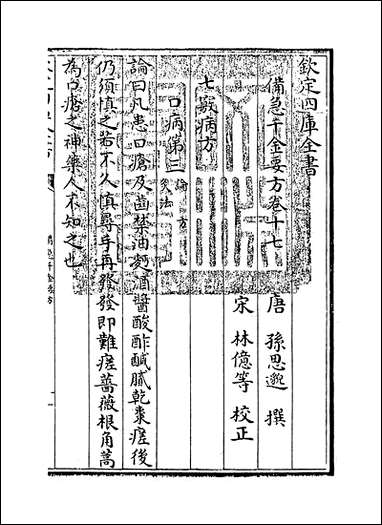 欽定四庫全書
備急千金要方卷十七
唐 孫思邈 撰
宋 林億等 校正
七竅病方
口病第三 論 方 灸法
論曰凡患口瘡及齒禁油麫酒醬酸酢鹹膩乾棗瘥後
仍須慎之若不久慎尋手再發發即難瘥薔薇根角蒿
為口瘡之神藥人不知之也